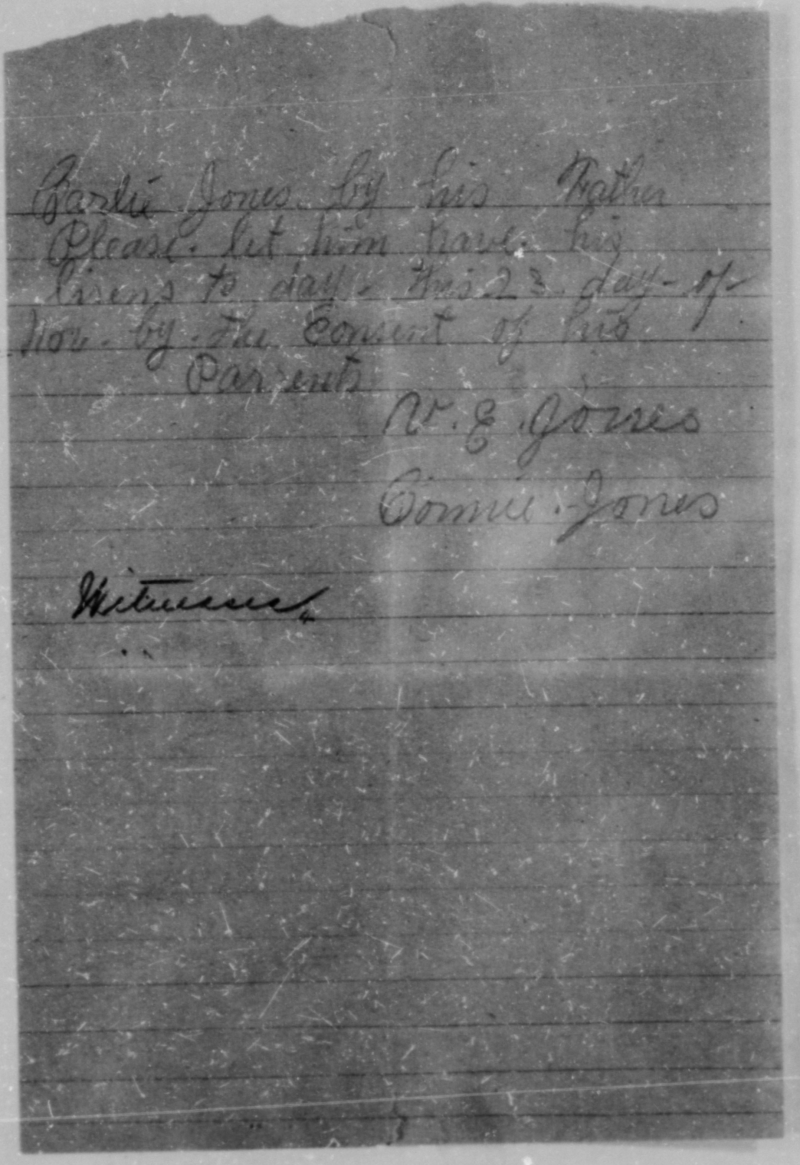 Carlie Jones by his Father
Please. let him have his
lisens to day - this 23 day - of
Nov. by the Consent of his
Parrents
W. E. Jones
Connie. Jones
Witnesses